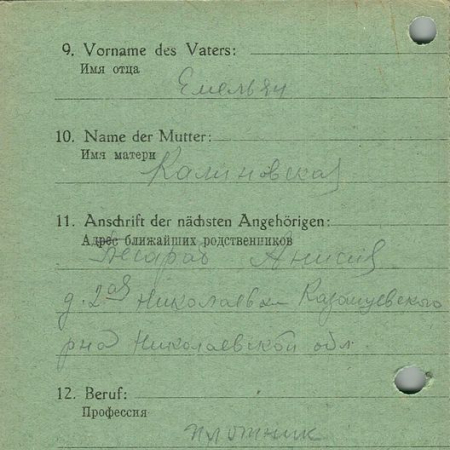 9. Vorname des Vaters:
Имя отца
Емельян
10. Name der Mutter:
Имя матери
Калиновская
11. Anschrift der nächsten Angehörigen:
Адрес ближайших родственников
Анисия
д. 2ая Николаевка
Николаевской обл.
12. Beruf:
Профессия
плотник